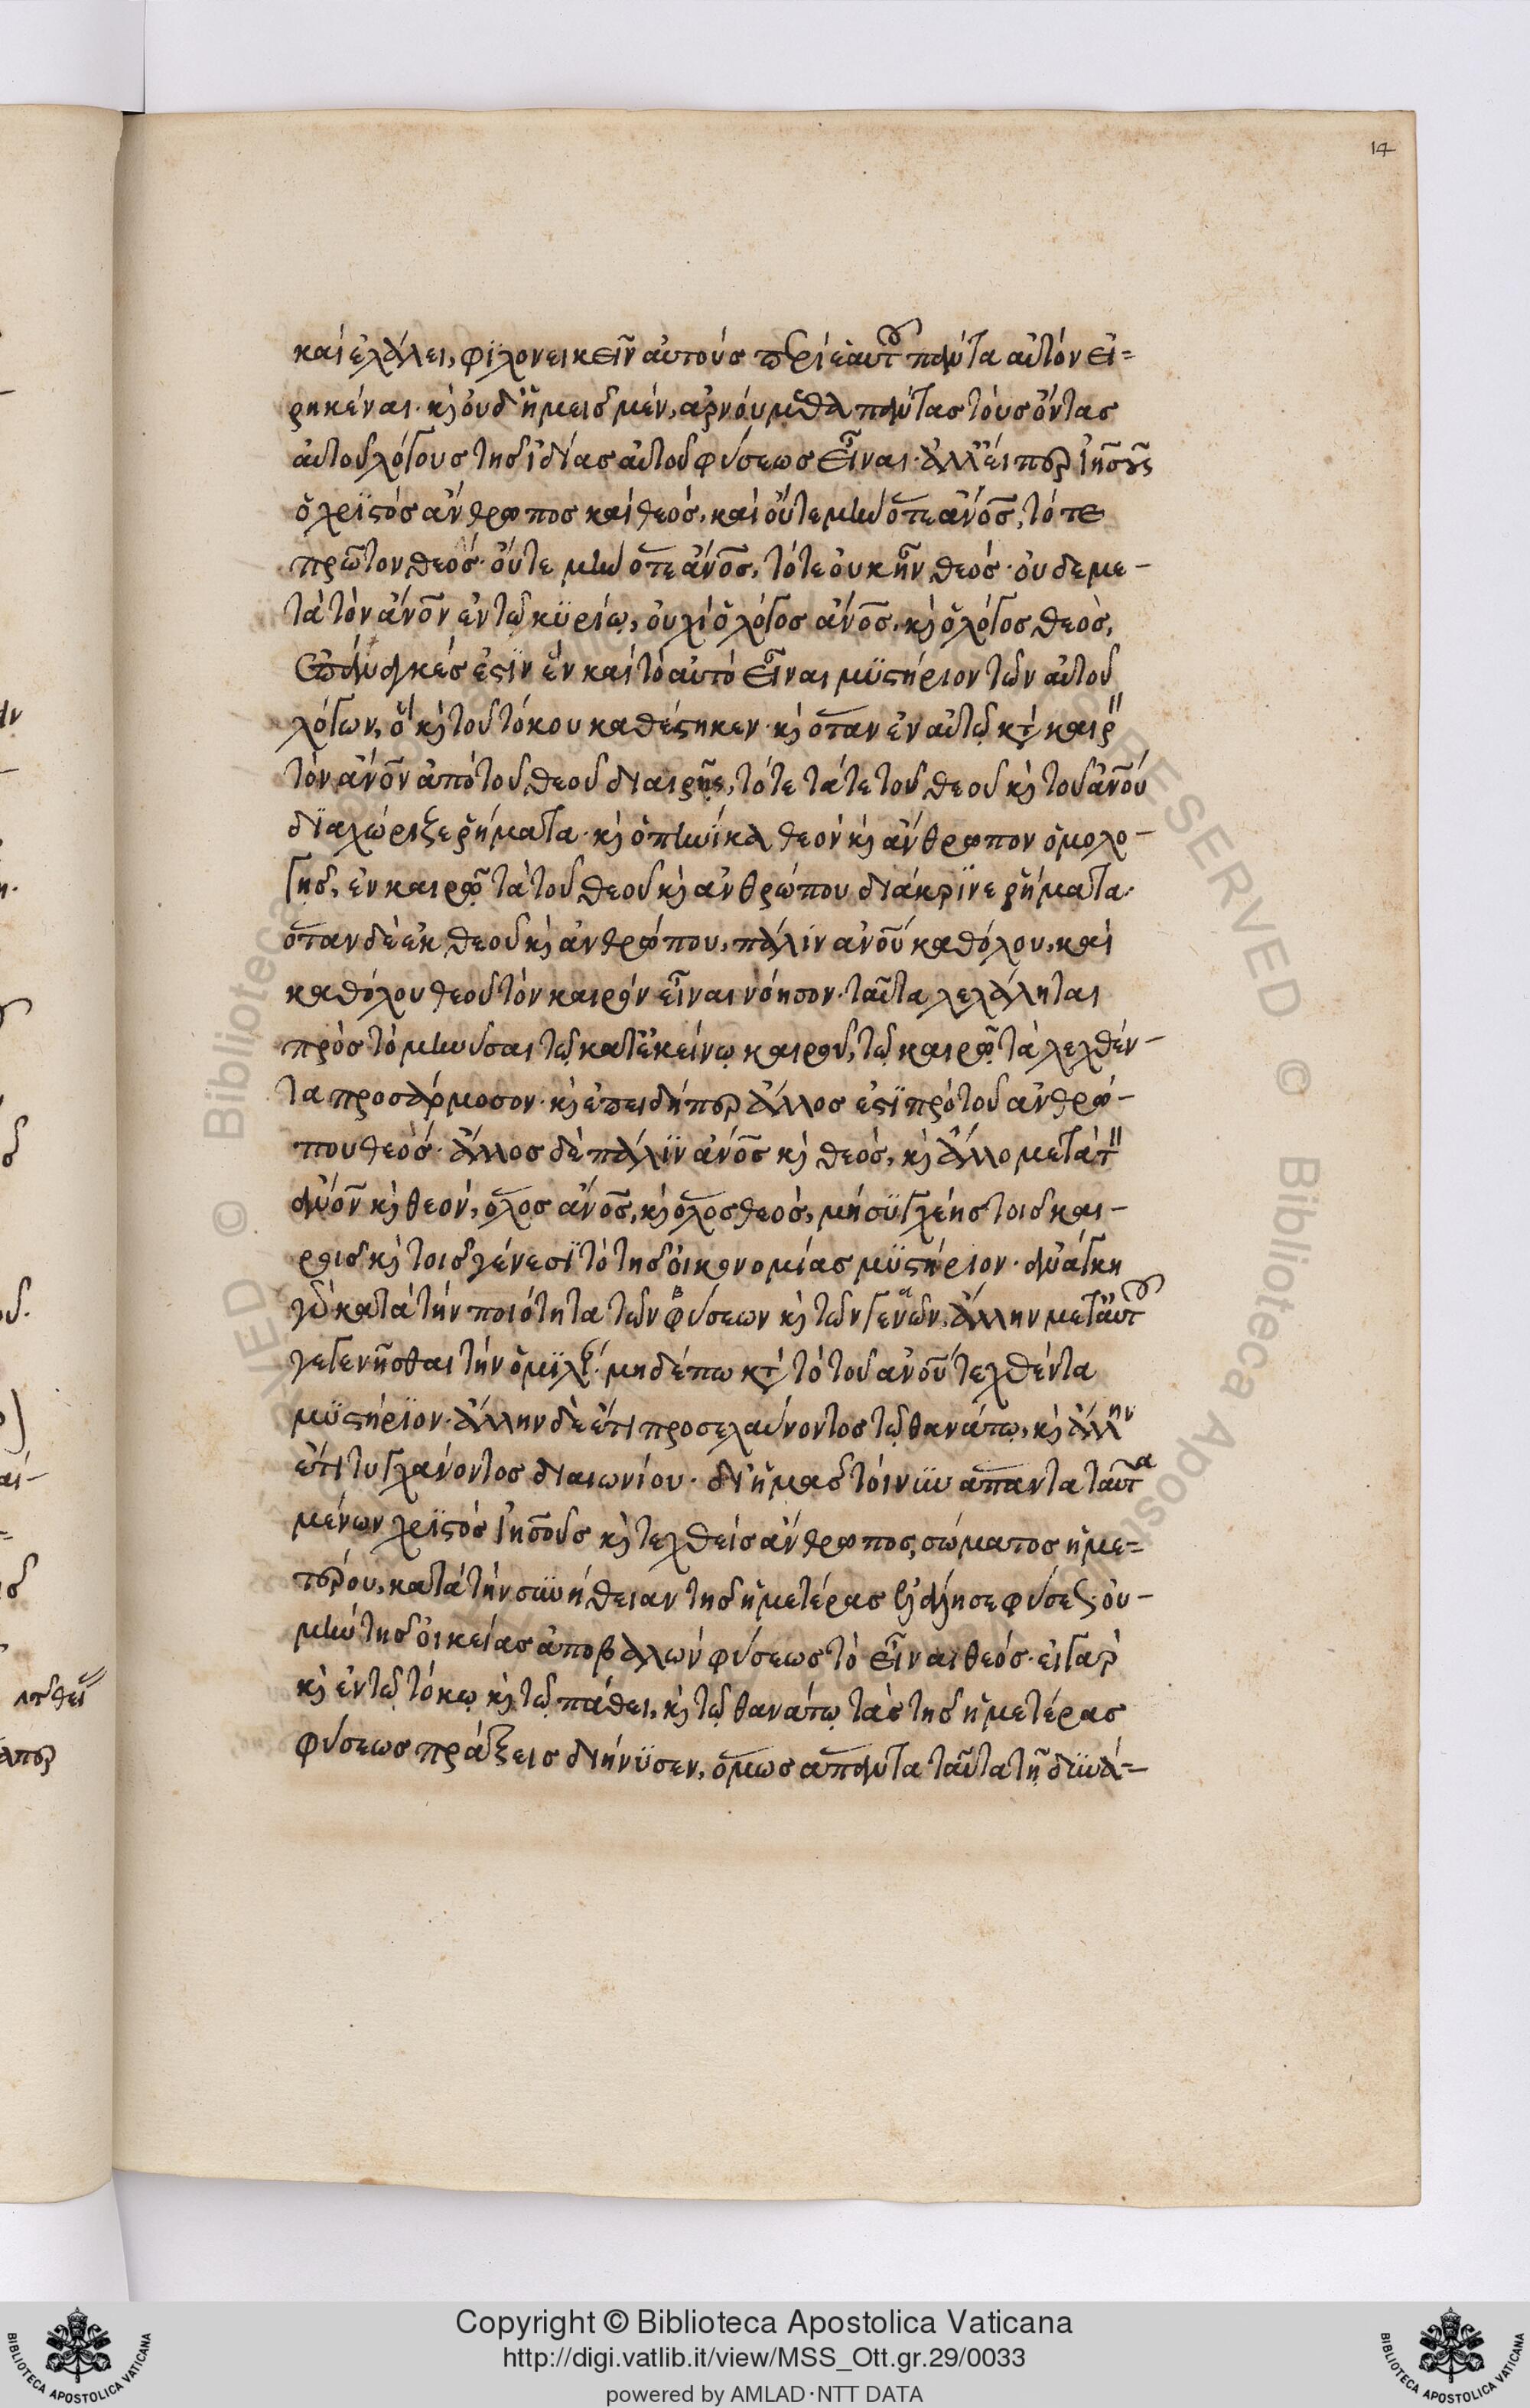 14
καὶ ἐλάλει, φϊλονεικεῖν αὐτοὺς περὶ ἑαυτοῦ πάντα αὐτὸν εἰ=
ρηκέναι· κὶ οὐδ' ἡμεῖς μέν, ἀρνούμεθα πάντας τοὺς ὄντας
αὐτοῦ λόγους τῆς ἰδίας αὐτοῦ φύσεως εἶναι· ἀλλ' εἴπερ ἰησοῦς
ὁ χρϊστὸς ἄνθρωπος καὶ θεός, καὶ οὔτε μὴν ὅτε ἄνος, τότε
πρῶτον θεός· οὔτε μὴν ὅτε ἄνος, τότε οὐκ ἦν θεός· οὐδὲ με-
τὰ τὸν ἄνον ἐν τῷ κϋρίῳ, οὐχὶ ὁ λόγος ἄνος, κὶ ὁ λόγος θεὸς,
ἐπάναγκές ἐστϊν ἓν καὶ τὸ αὐτὸ εἶναι μϋστήριον τῶν αὐτοῦ
λόγων, ὃ κὶ τοῦ τόκου καθέστηκεν· κὶ ὅταν ἐν αὐτῷ κτ καιρ
τὸν ἄνον ἀπὸ τοῦ θεοῦ διαιρῇς, τότε τά τε τοῦ θεοῦ κὶ τοῦ ἀνού
διαχώριξε ῥήματα· κὶ ὁπηνίκα θεὸν κὶ ἄνθρωπον ὁμολο-
γῇς, ἐν καιρῷ τὰ τοῦ θεοῦ κὶ ἀνθρώπου διάκρϊνε ῥήματα·
ὅταν δὲ ἐκ θεοῦ κὶ ἀνθρώπου, πάλιν ἀνού καθόλου, καὶ
καθόλου θεοῦ τὸν καιρὸν εἶναι νόησον· ταῦτα λελάληται
πρὸς τὸ μηνῦσαι τῷ κατ' ἐκείνῳ καιροῦ, τῷ καιρῷ τὰ λεχθέν-
τα προσάρμοσον· κὶ ἐπειδήπερ ἄλλος ἐστϊ πρὸ τοῦ ἀνθρώ-
που θεὸς· ἄλλος δὲ πάλϊν ἄνος κὶ θεὸς, κὶ ἄλλο μετὰ τ
ἄνον κὶ θεόν, ὅλος ἄνος, κὶ ὅλος θεός, μὴ συγχέῃς τοῖς και-
ροῖς κὶ τοῖς γένεσϊ τὸ τῆς οἰκονομίας μϋστήριον· ἀνάγκη
γὰρ κατὰ τὴν ποιότητα τῶν φύσεων κὶ τῶν γενῶν, ἄλλην μετ' αὐτοῦ
γεγενῆσθαι τὴν ὁμϊλ· μηδέπω κτ τὸ τοῦ ἀνού τεχθέντα
μϋστήρϊον· ἄλλην δὲ ἔτι προσελαύνοντος τῷ θανάτῳ, κὶ ἄλλην
ἔτι τυγχάνοντος διαιωνίου· δι' ἡμᾶς τοίνυν ἅπαντα ταῦτα
μένων χρϊστὸς ἰησοῦς κὶ τεχθεὶς ἄνθρωπος, σώματος ἡμε=
τέρου, κατὰ τὴν συνήθειαν τῆς ἡμετέρας ἔζησε φύσεως· οὐ-
μὴν τῆς οἰκείας ἀποβαλὼν φύσεως τὸ εἶναι θεός· εἰ γὰρ
κὶ ἐν τῷ τόκῳ κὶ τῷ πάθει, κὶ τῷ θανάτῳ τὰς τῆς ἡμετέρας
φύσεως πράξεις διήνϋσεν, ὅμως ἅπαντα ταῦτα τῇ δυνά=
Copyright © Biblioteca Apostolica Vaticana
http://digi.vatlib.it/view/MSS_Ott.gr.29/0033
powered by AMLAD·NTT DATA